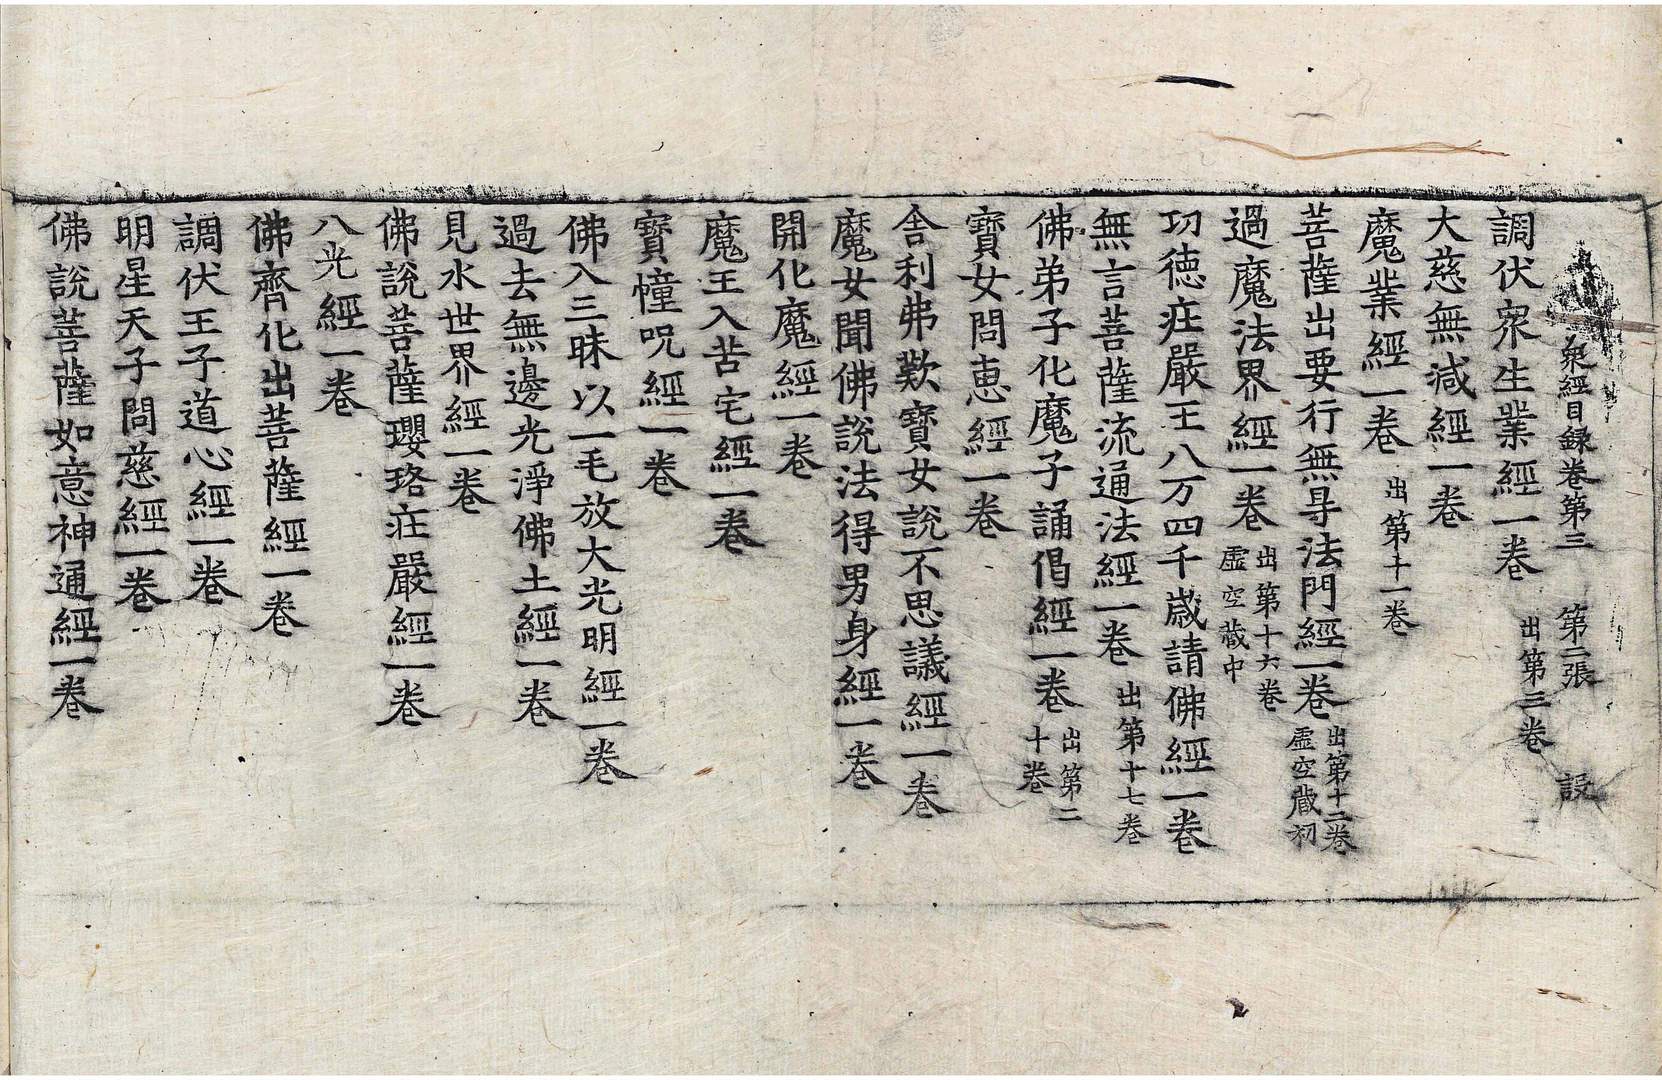 衆經目録卷第三 第二張 設
調伏衆生業經一卷 出第三卷
大慈無減經一卷
魔業經一卷 出第十一卷
菩薩出要行無㝵法門經一卷 出第十二卷虛空藏初
過魔法界經一卷 出第十六卷虛空藏中
功德莊嚴王八万四千歲請佛經一卷
無言菩薩流通法經一卷 出第十七卷
佛弟子化魔子誦偈經一卷 出第二十卷
寶女問恵經一卷
舎利弗歎寶女說不思議經一卷
魔女聞佛說法得男身經一卷
開化魔經一卷
魔王入苦宅經一卷
寶幢呪經一卷
佛入三昧以一毛放大光明經一卷
過去無邊光淨佛土經一卷
見水世界經一卷
佛說菩薩瓔珞莊嚴經一卷
八光經一卷
佛齊化出菩薩經一卷
調伏王子道心經一卷
明星天子問慈經一卷
佛說菩薩如意神通經一卷